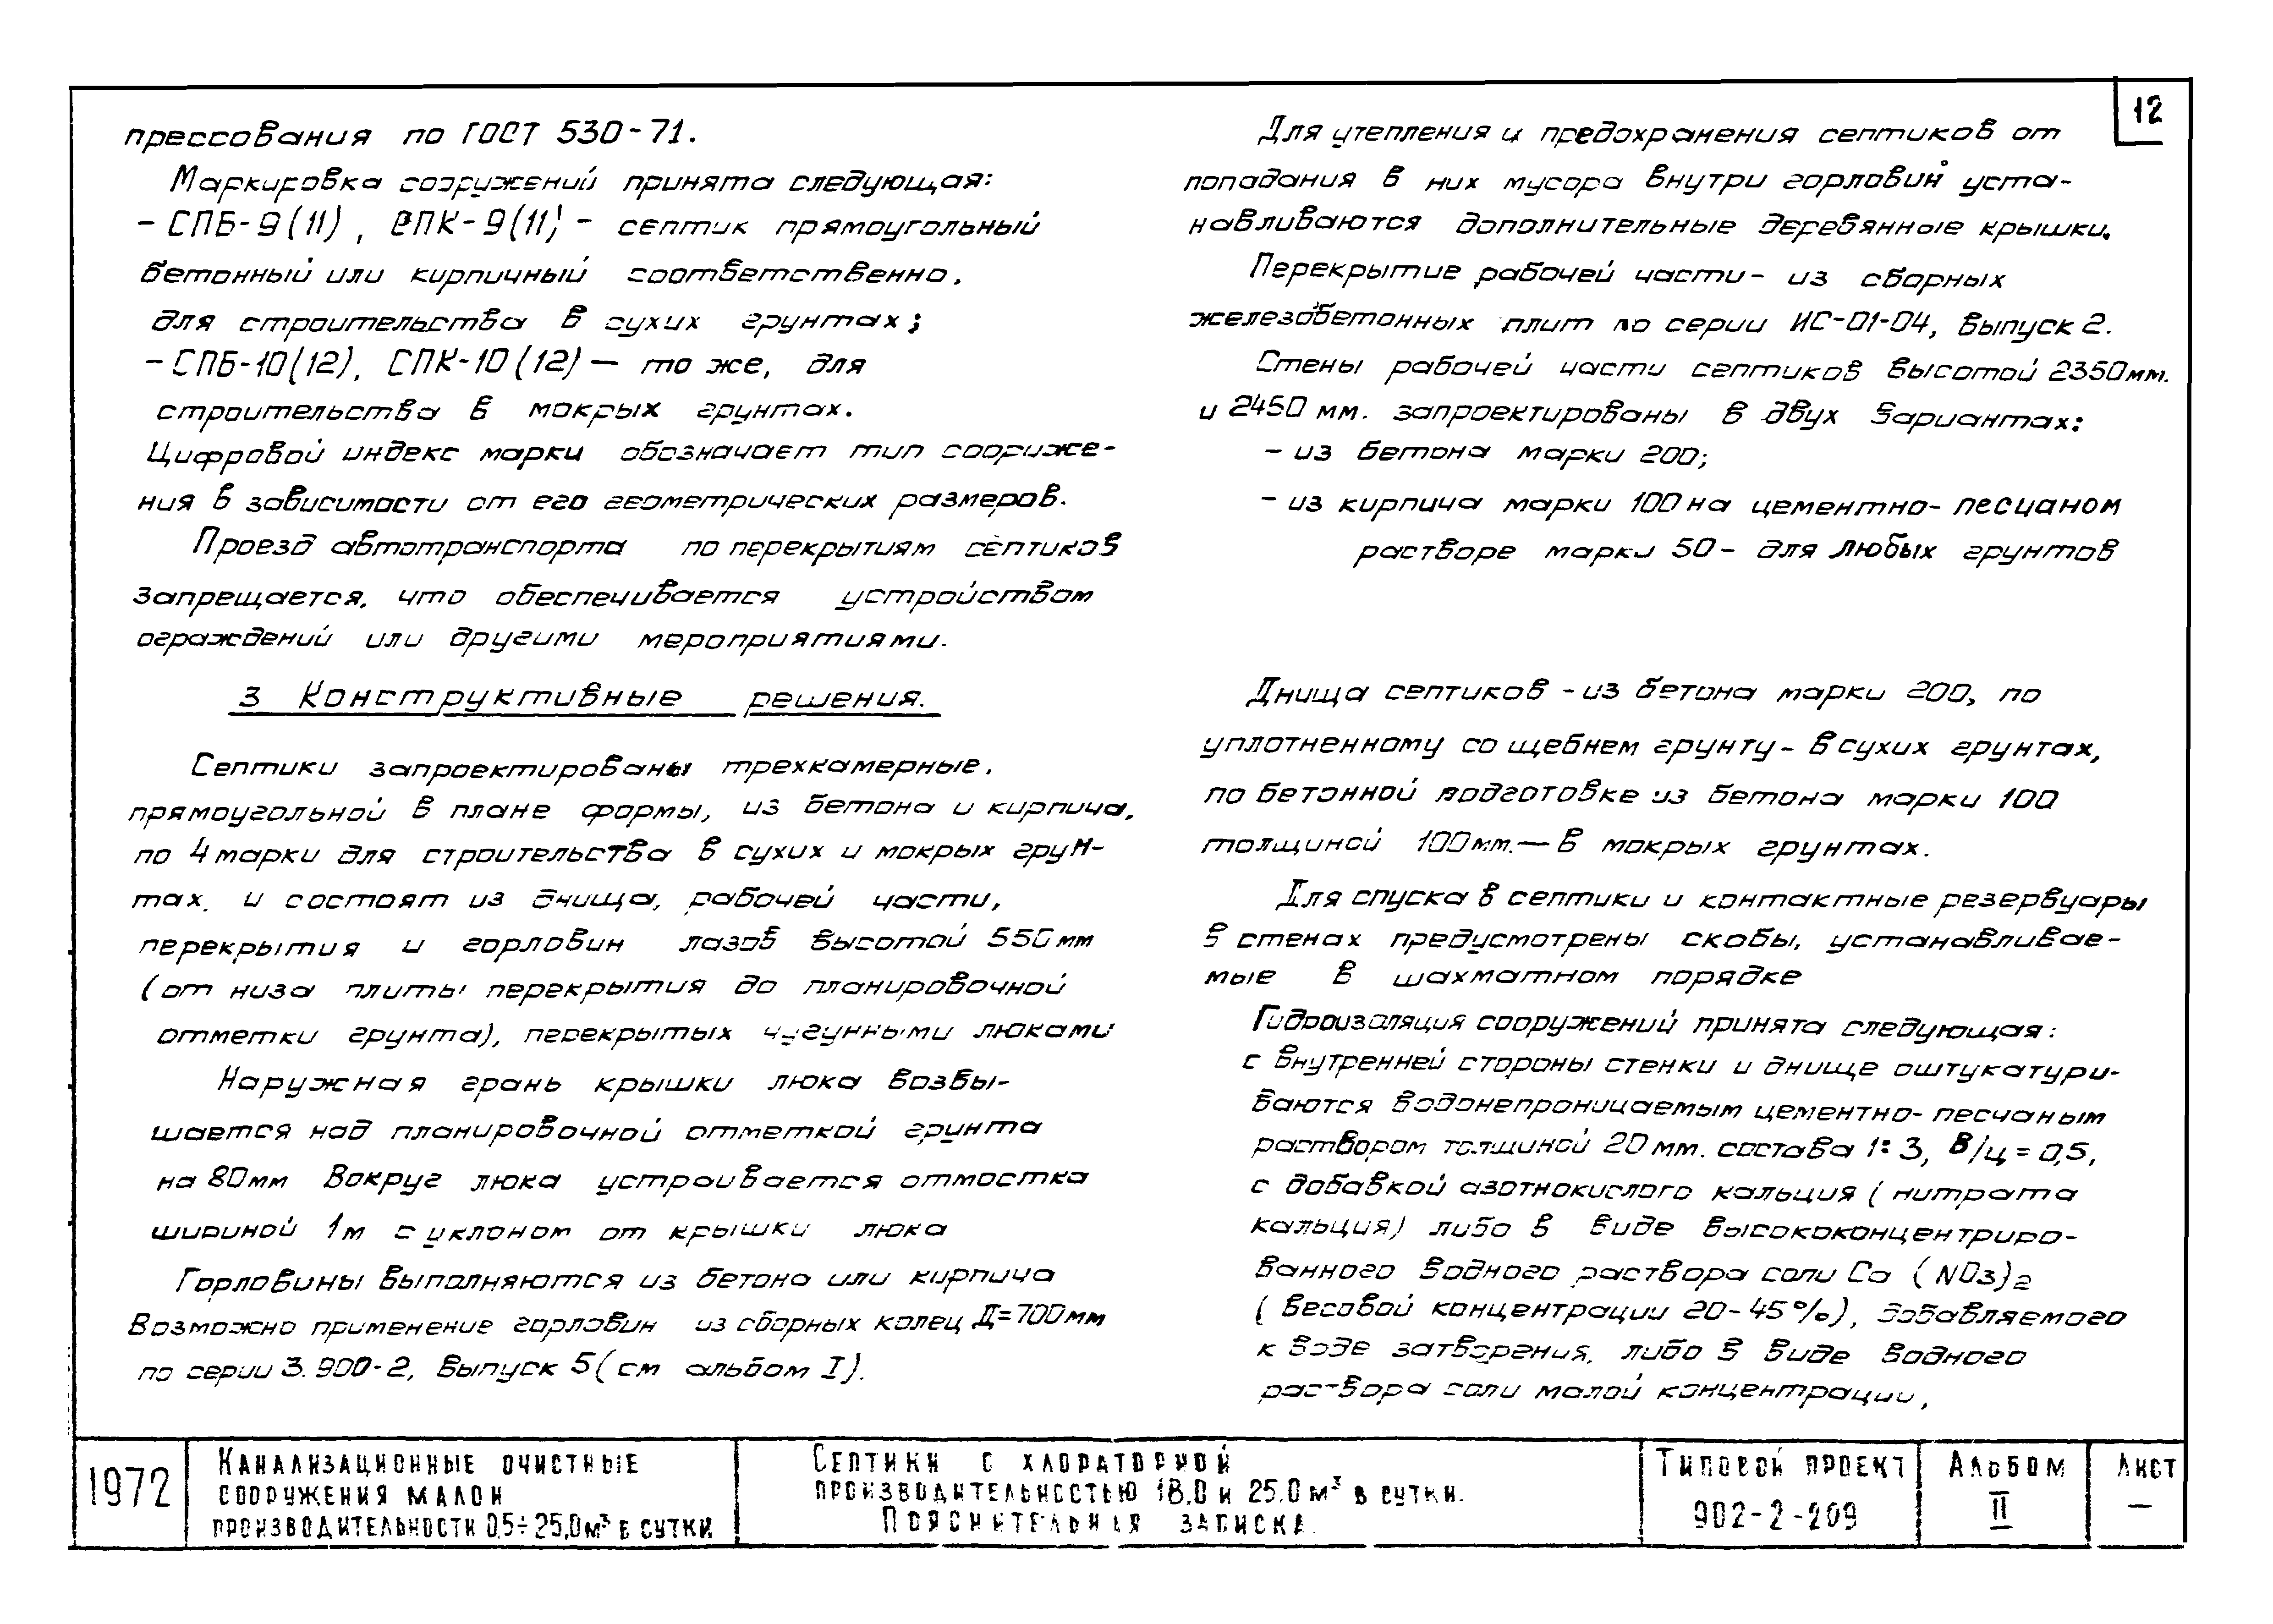 12
прессования по ГОСТ 530-71.
Маркировка сооружений принята следующая:
- СПБ-9(11), СПК-9(11) - септик прямоугольный
бетонный или кирпичный соответственно,
для строительства в сухих грунтах;
- СПБ-10(12), СПК-10(12) — то же, для
строительства в мокрых грунтах.
Цифровой индекс марки обозначает тип сооруже-
ния в зависимости от его геометрических размеров.
Проезд автотранспорта по перекрытиям септиков
запрещается, что обеспечивается устройством
ограждений или другими мероприятиями.
3 Конструктивные решения.
Септики запроектированы трехкамерные,
прямоугольной в плане формы, из бетона и кирпича,
по 4 марки для строительства в сухих и мокрых грун-
тах, и состоят из днища, рабочей части,
перекрытия и горловин лазов высотой 550 мм
(от низа плиты перекрытия до планировочной
отметки грунта), перекрытых чугунными люками
Наружная грань крышки люка возвы-
шается над планировочной отметкой грунта
на 80мм Вокруг люка устраивается отмостка
шириной 1м с уклоном от крышки люка
Горловины выполняются из бетона или кирпича
Возможно применение горловин из сборных колец Д=700мм
по серии 3.900-2, выпуск 5 (см альбом I).
Для утепления и предохранения септиков от
попадания в них мусора внутри горловин уста-
навливаются дополнительные деревянные крышки.
Перекрытие рабочей части - из сборных
железобетонных плит по серии ИС-01-04, выпуск 2.
Стены рабочей части септиков высотой 2350мм.
и 2450 мм. запроектированы в двух вариантах:
- из бетона марки 200;
- из кирпича марки 100 на цементно-песчаном
растворе марки 50 - для любых грунтов
Днища септиков - из бетона марки 200, по
уплотненному со щебнем грунту - в сухих грунтах,
по бетонной подготовке из бетона марки 100
толщиной 100мм. — в мокрых грунтах.
Для спуска в септики и контактные резервуары
в стенах предусмотрены скобы, устанавливае-
мые в шахматном порядке
Гидроизоляция сооружений принята следующая:
с внутренней стороны стенки и днище оштукатури-
ваются водонепроницаемым цементно-песчаным
раствором толщиной 20 мм. состава 1:3, В/ц = 0,5,
с добавкой азотнокислого кальция (нитрата
кальция) либо в виде высококонцентриро-
ванного водного раствора соли Ca (NO3)2
(весовой концентрации 20-45%), добавляемого
к воде затворения, либо в виде водного
раствора соли малой концентрации,
1972
Канализационные очистные
сооружения малой
производительности 0,5÷25,0м³ в сутки
Септики с хлораторной
производительностью 18,0 и 25,0 м³ в сутки.
Пояснительная записка.
Типовой проект
902-2-209
Альбом
II
Лист
—